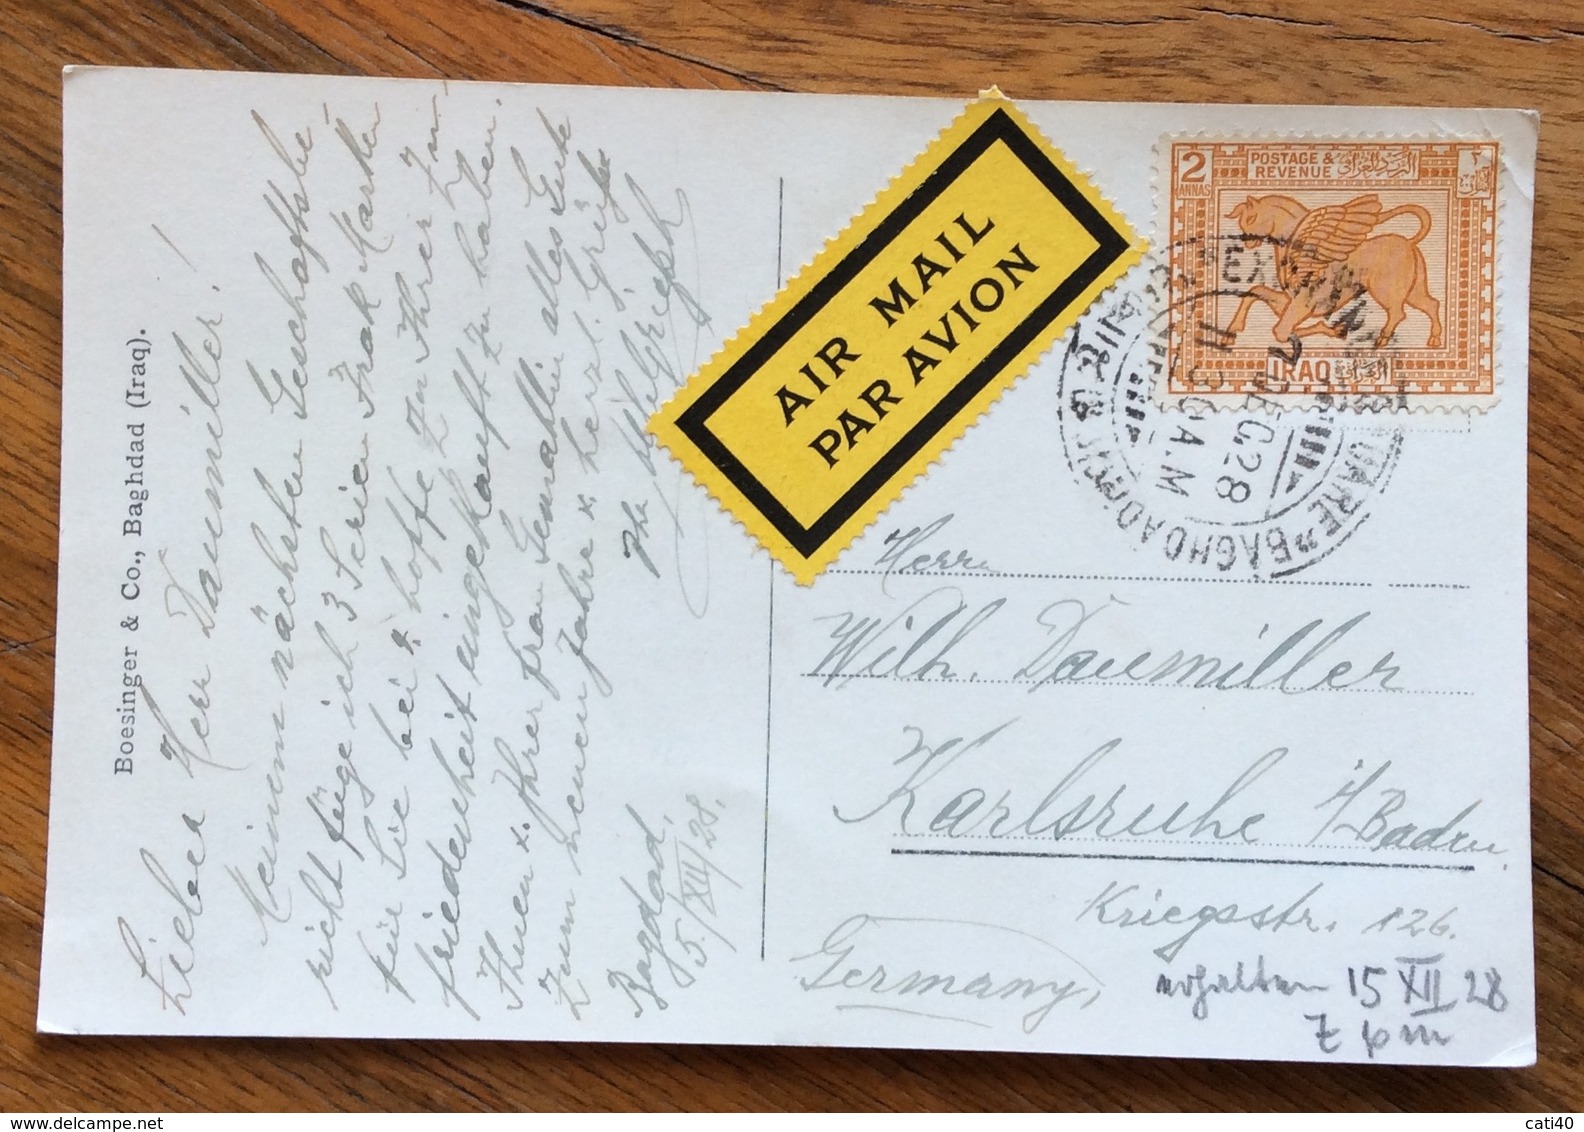 Boesinger & Co., Baghdad (Iraq).
Lieber Herr Daumüller!
Meinem nächsten Geschäftsbe-
richt füge ich 3 Serien Irak Marken
für Sie bei & hoffe zu Ihrer Zu-
friedenheit eingekauft zu haben.
Ihnen & Ihrer Frau Gemahlin alles Gute
zum neuen Jahre & herzl. Grüße
Ihr
Bagdad,
5./XII/28.
AIR MAIL
PAR AVION
2
ANNAS
POSTAGE &
REVENUE
IRAQ
BAGHDAD
7 DEC. 28
11 30 A.M
Herrn
Wilh. Daumiller
Karlsruhe i/Baden
Kriegsstr. 126.
Germany,
erhalten 15 XII 28
www.delcampe.net
cati40